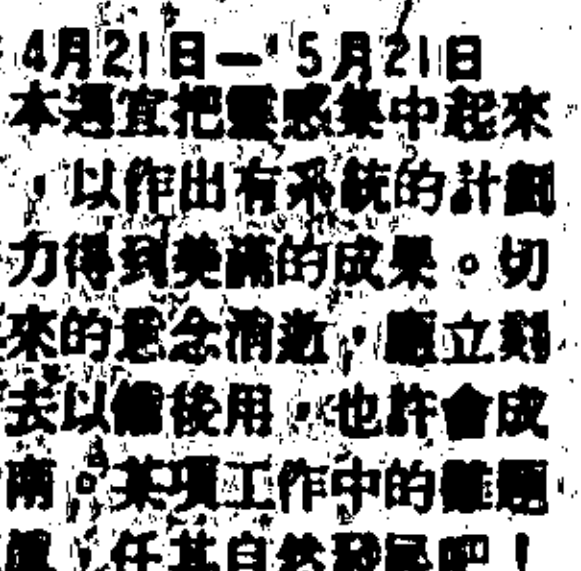 4月21日—5月21日
本週宜把靈感集中起來
，以作出有系統的計劃
力得到美滿的成果。切
來的意念消逝，應立刻
去以備後用，也許會成
兩。某項工作中的難題
，任其自然發展吧！